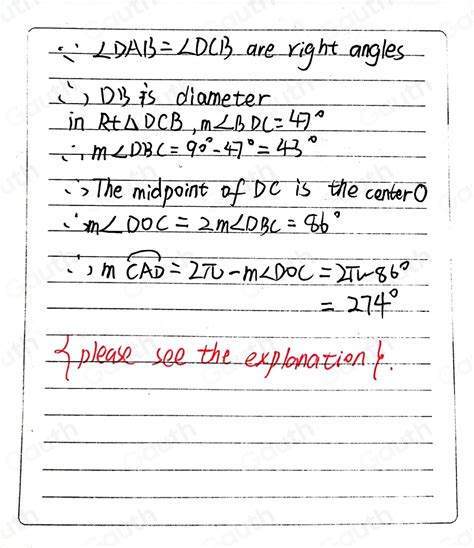 ∵ ∠DAB=∠DCB are right angles
∴ DB is diameter
in Rt△DCB, m∠BDC=47°
∴ m∠DBC=90°-47°=43°
∵ The midpoint of DC is the center O
∴ m∠DOC=2m∠DBC=86°
∴ m CAD=2π-m∠DOC=2π-86°
=274°
{please see the explanation}.